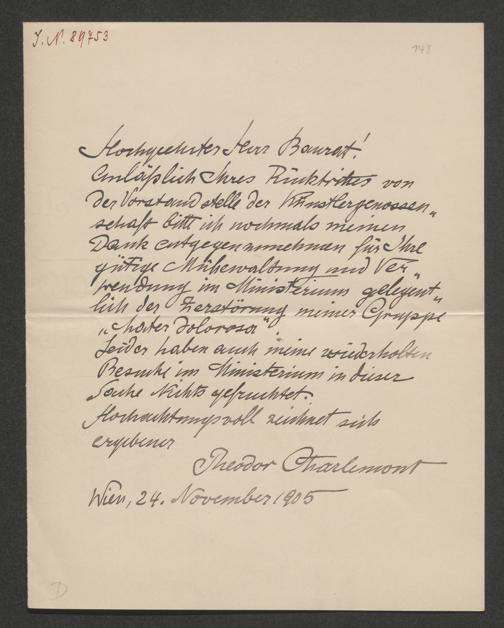 J. N. 89753
148
Hochgeehrter Herr Baurat!
Anläßlich Ihres Rücktrittes von
der Vorstandstelle der Künstlergenossen„
schaft bitte ich nochmals meinen
Dank entgegenzunehmen für Ihre
gütige Mühewaltung und Ver„
wendung im Ministerium gelegent„
lich der Zerstörung meiner Gruppe
„Mater dolorosa".
Leider haben auch meine wiederholten
Besuche im Ministerium in dieser
Sache Nichts gefruchtet.
Hochachtungsvoll zeichnet sich
ergebener
Theodor Charlemont
Wien, 24. November 1905
D